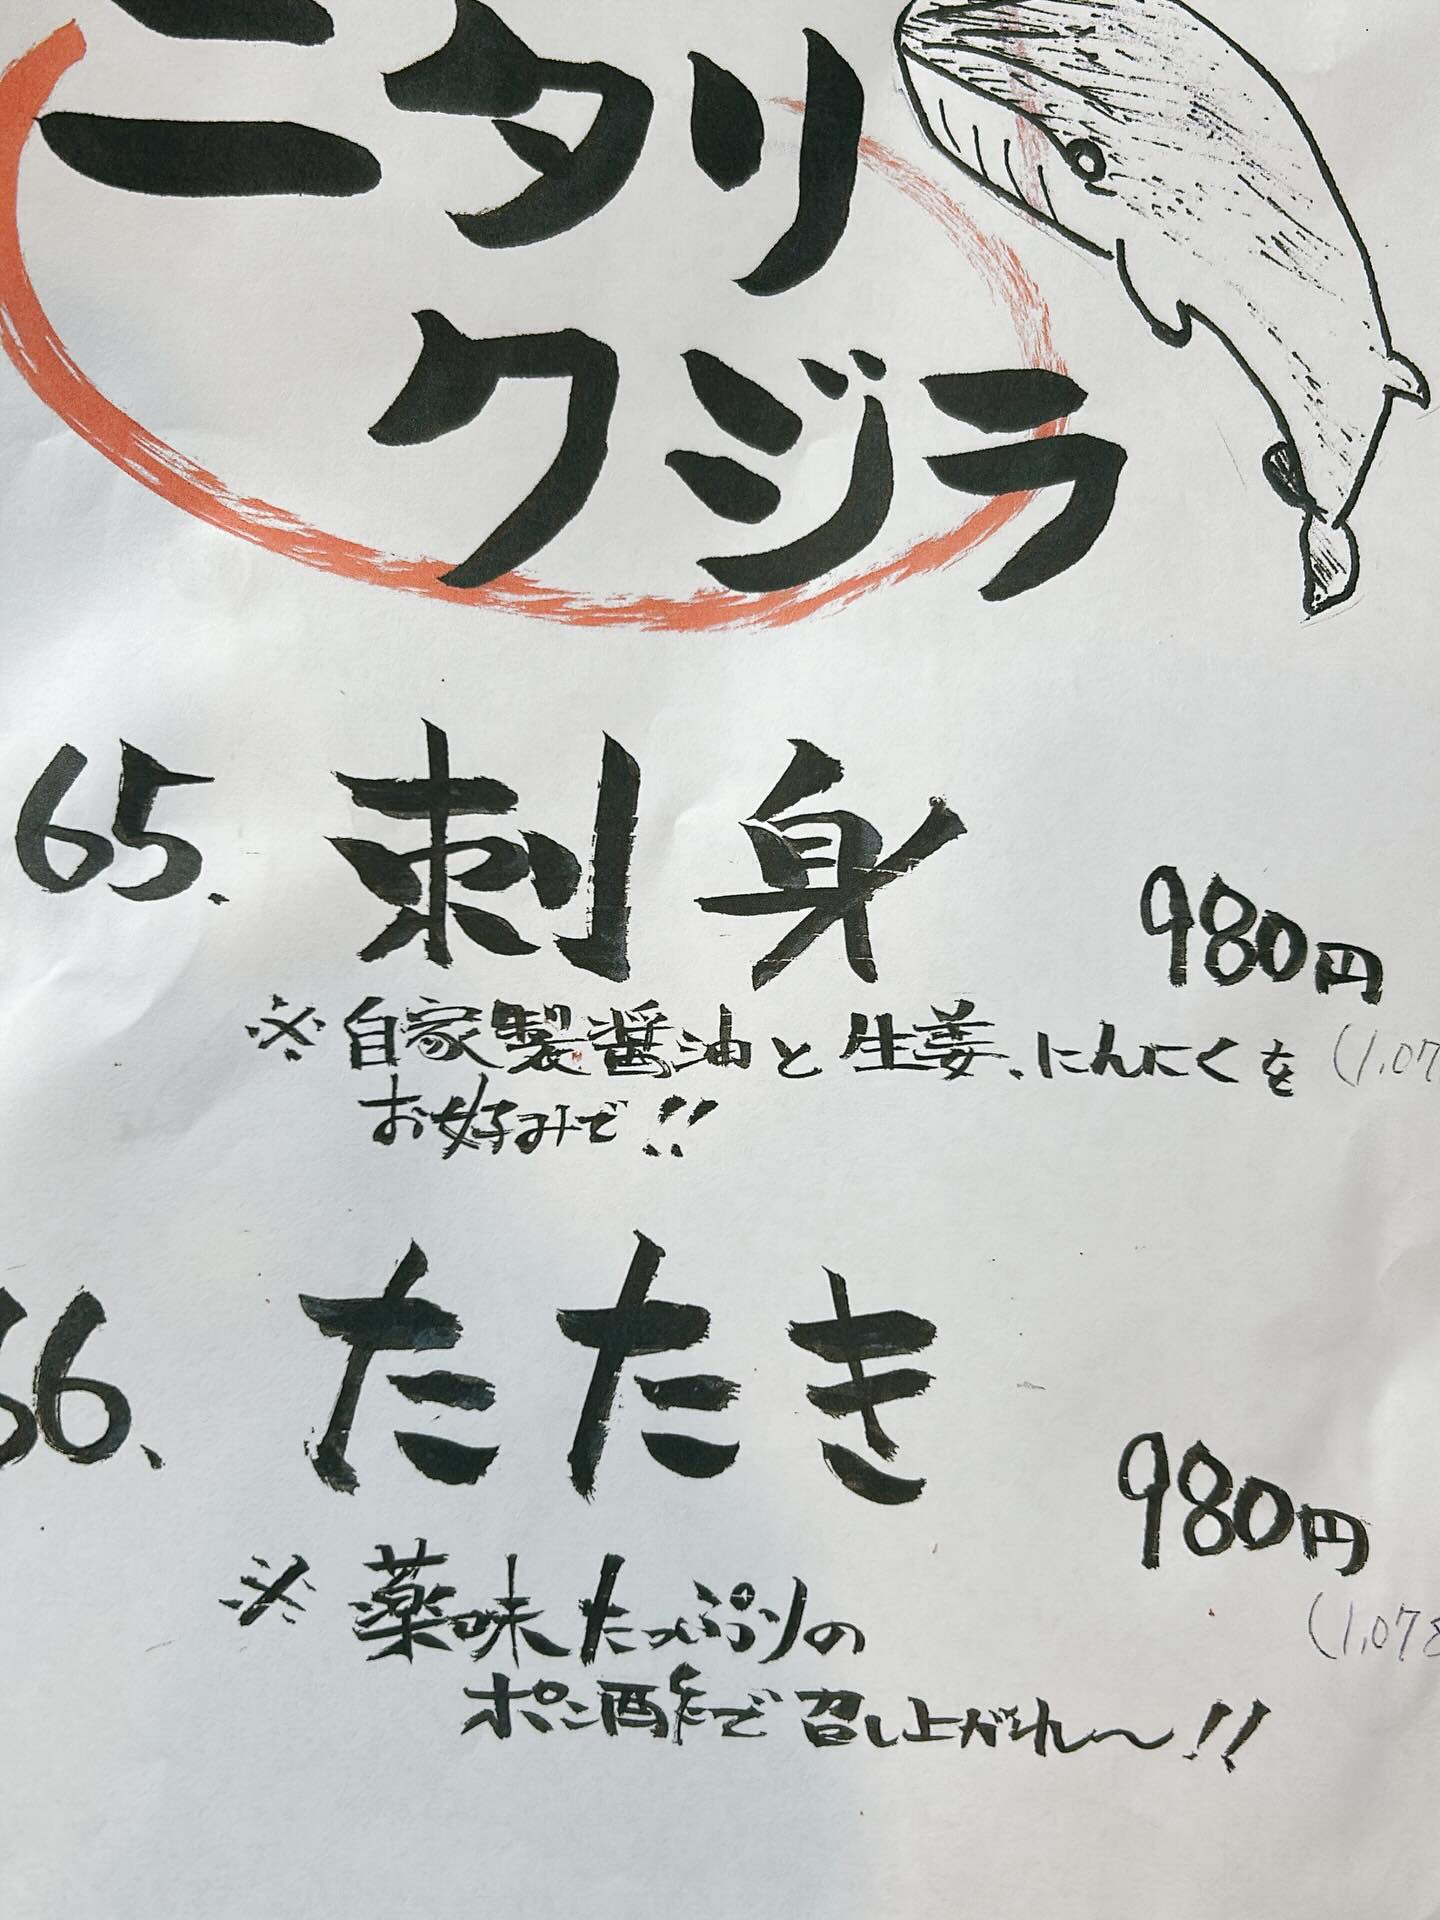 ニタリ
クジラ
65. 刺身 980円
※自家製醤油と生姜、にんにくを (1,07
お好みで!!
66. たたき 980円
(1,078
※薬味たっぷりの
ポン酢で召し上がれ〜!!